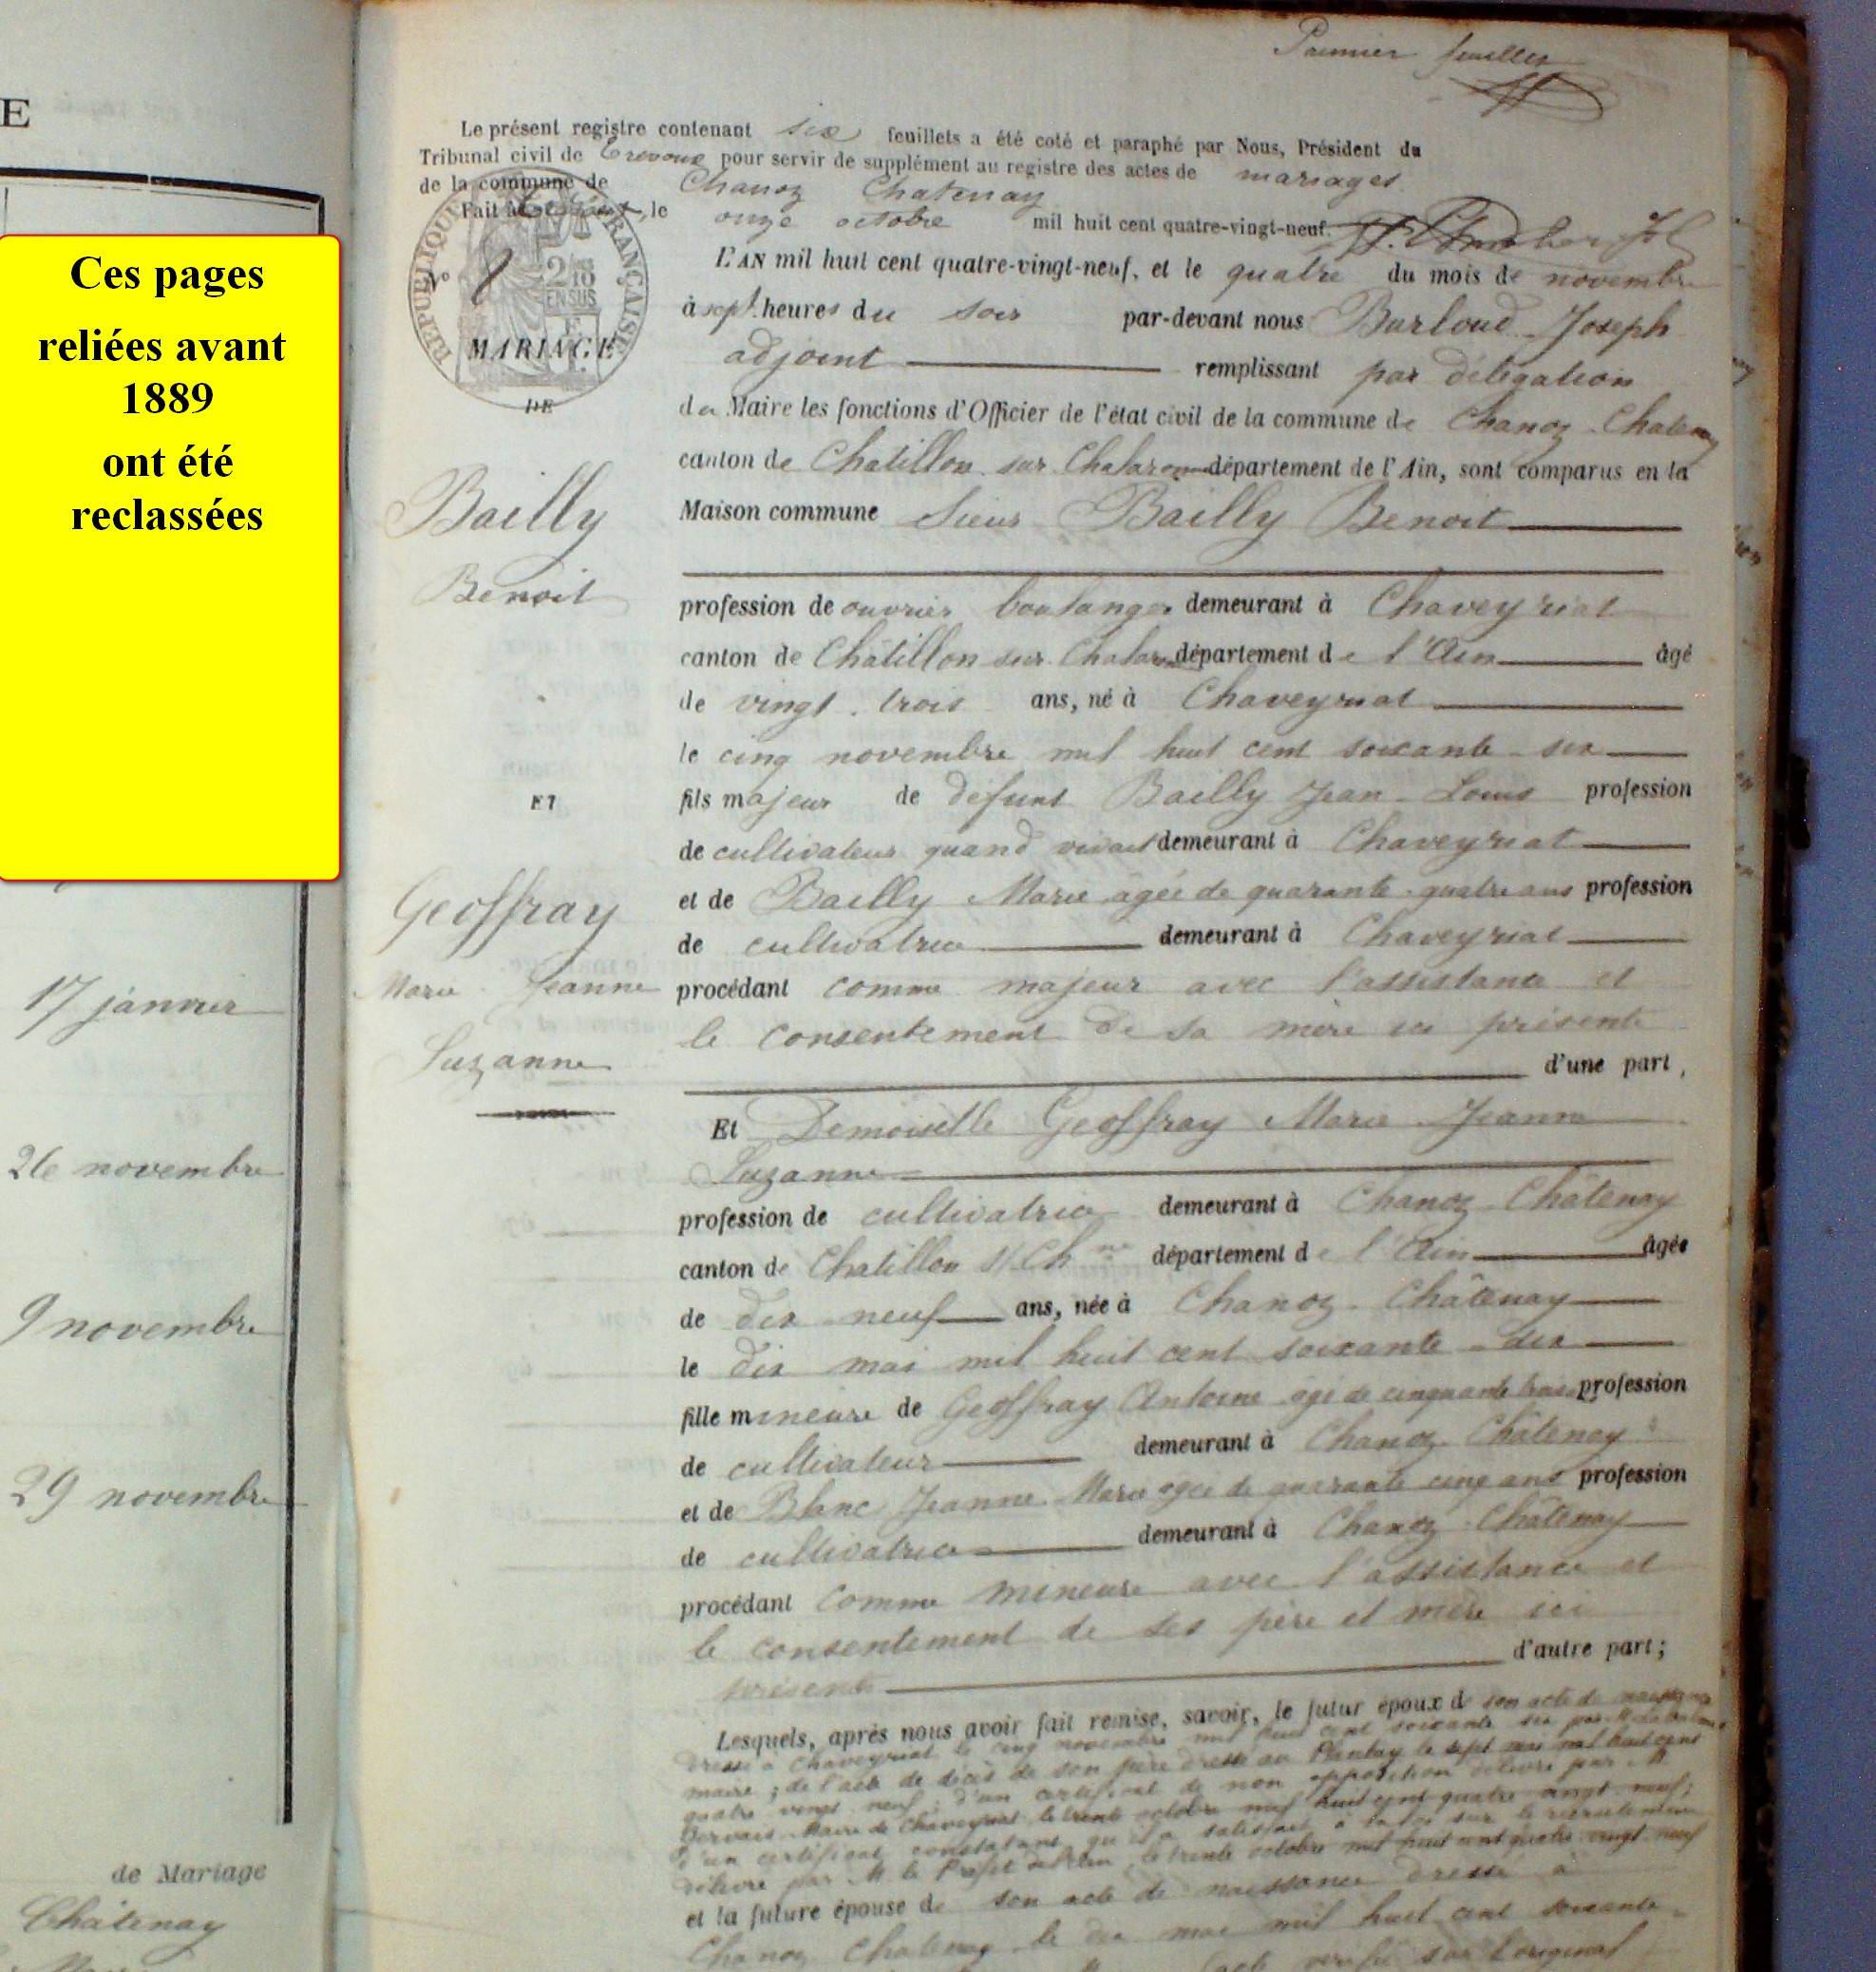 E
Ces pages
reliées avant
1889
ont été
reclassées
17 janvier
26 novembre
9 novembre
29 novembre
de Mariage
Châtenay
Premier feuillet
Le présent registre contenant six feuillets a été coté et paraphé par Nous, Président du
Tribunal civil de Trévoux pour servir de supplément au registre des actes de mariages
de la commune de Chanoz Chatenay
Fait à Trévoux, le onze octobre mil huit cent quatre-vingt-neuf.
RÉPUBLIQUE FRANÇAISE
2/10
EN SUS
N° 1
MARIAGE
DE
Bailly
Benoit
ET
Geoffray
Marie Jeanne
Suzanne
L'AN mil huit cent quatre-vingt-neuf, et le quatre du mois de novembre
à sept heures du soir par-devant nous Burloud Joseph
adjoint remplissant par délégation
du Maire les fonctions d'Officier de l'état civil de la commune de Chanoz-Chatenay
canton de Chatillon sur Chalaronne département de l'Ain, sont comparus en la
Maison commune Sieur Bailly Benoit
profession de ouvrier boulanger demeurant à Chaveyriat
canton de Châtillon sur Chalaronne département de l'Ain âgé
de vingt trois ans, né à Chaveyriat
le cinq novembre mil huit cent soixante-six
fils majeur de défunt Bailly Jean-Louis profession
de cultivateur quand vivait demeurant à Chaveyriat
et de Bailly Marie âgée de quarante-quatre ans profession
de cultivatrice demeurant à Chaveyriat
procédant comme majeur avec l'assistance et
le consentement de sa mère ici présente
d'une part,
Et Demoiselle Geoffray Marie Jeanne
Suzanne
profession de cultivatrice demeurant à Chanoz Châtenay
canton de Chatillon s/ Chne département de l'Ain âgée
de dix neuf ans, née à Chanoz-Châtenay
le dix mai mil huit cent soixante-dix
fille mineure de Geoffray Antoine âgé de cinquante trois profession
de cultivateur demeurant à Chanoz-Châtenay
et de Blanc Jeanne Marie âgée de quarante cinq ans profession
de cultivatrice demeurant à Chanoz-Châtenay
procédant comme mineure avec l'assistance et
le consentement de ses père et mère ici
présents d'autre part;
Lesquels, après nous avoir fait remise, savoir, le futur époux de son acte de naissance
dressé à Chaveyriat le cinq novembre mil huit cent soixante six par M.
maire; de l'acte de décès de son père dressé au Plantay le sept mai mil huit cent
quatre vingt neuf; d'un certificat de non opposition délivré par M
Gervais Maire de Chaveyriat le trente octobre mil huit cent quatre vingt neuf;
d'un certificat constatant qu'il a satisfait à la loi sur le recrutement
délivré par M. le Préfet de l'Ain le trente octobre mil huit cent quatre vingt neuf
et la future épouse de son acte de naissance dressé à
Chanoz Chatenay le dix mai mil huit cent soixante-
acte vérifié sur l'original